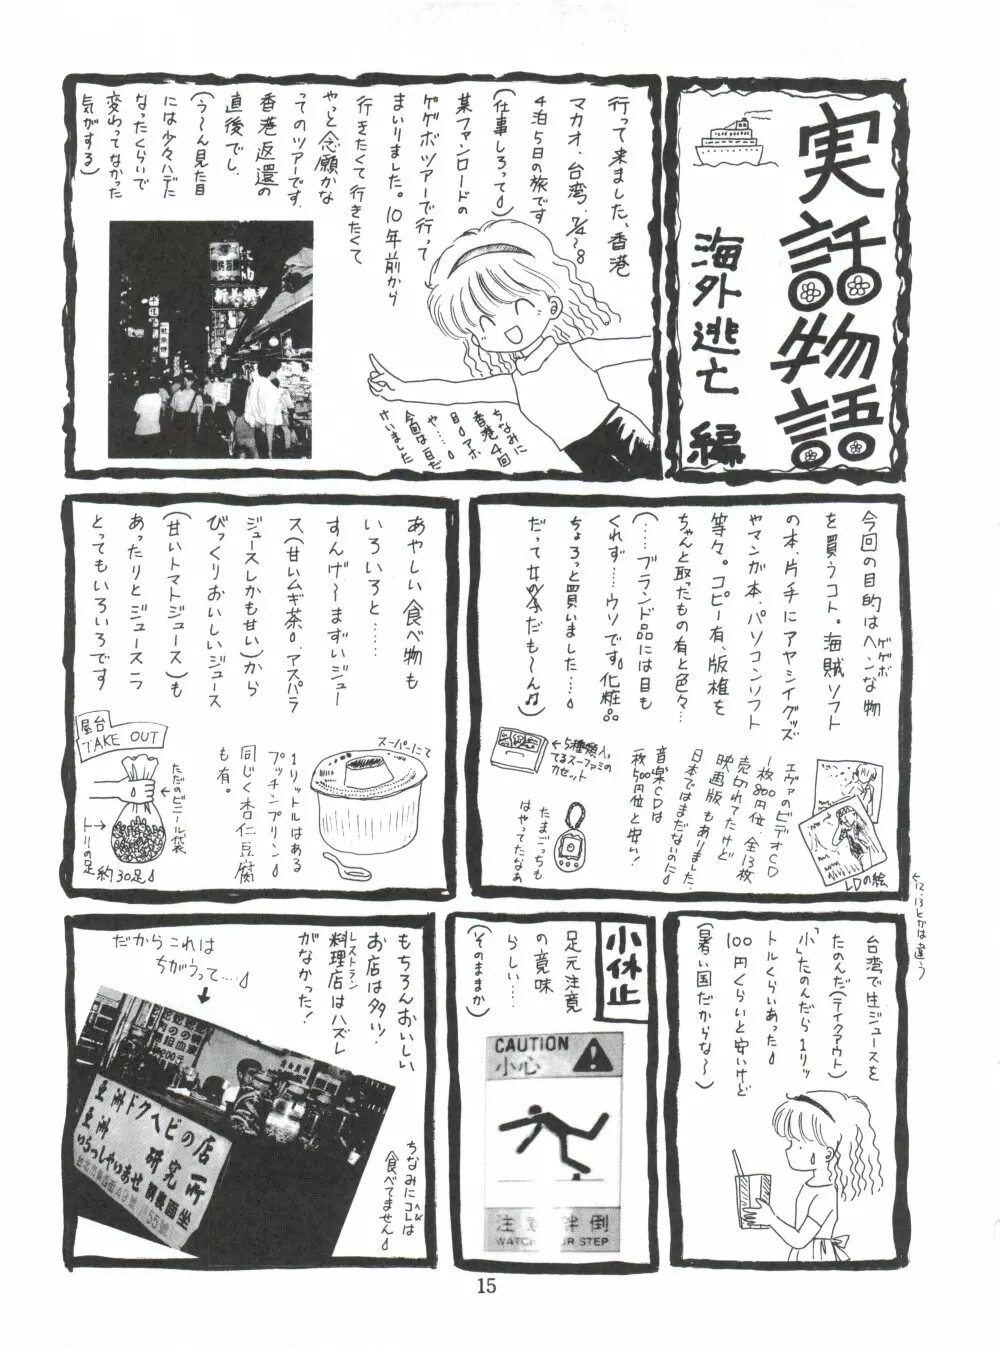 実話物語
海外逃亡編
行って来ました、香港
マカオ、台湾、7/4〜8
4泊5日の旅です
(仕事しろって)
某ファンロードの
ゲゲボツアーで行って
まいりました。10年前から
行きたくて行きたくて
やっと念願かな
ってのツアーです。
香港返還の
直後でし
(う〜ん見た目
には少々ハデに
なったくらいで
変わってなかった
気がする)
ちなみに
香港4回
目。アホ
や…。
今回は目だ
けいました
今回の目的はヘンな物
ゲゲボ
を買うコト。海賊ソフト
の本、片手にアヤシイグッズ
やマンガ本、パソコンソフト
等々。コピー有、版権を
ちゃんと取ったもの有と色々…
(……ブランド品には目も
くれず……ウソです。化粧品
ちょろっと買いました…。
だって女の子だも〜ん♫)
エヴァのビデオCD
一枚800円位、全13枚
売切れてたけど
映画版もありました、
日本ではまだないのに。
音楽CDは
一枚500円位と安い!
←5種類入っ
てるスーファミの
カセット
たまごっちも
はやってたなぁ
LDの絵
12、13とかは違う
あやしい食べ物も
いろいろと……
すんげ〜まずいジュー
ス(甘いムギ茶。アスパラ
ジュースしかも甘い)から
びっくりおいしいジュース
(甘いトマトジュース)も
あったりとジュース一
とってもいろいろです
スーパーにて
1リットルはある
プッチンプリン。
同じく杏仁豆腐
も有。
屋台
TAKE OUT
ただのビニール袋
トリの足→
約30足
台湾で生ジュースを
たのんだ(テイクアウト)
「小」たのんだら1リッ
トルくらいあった
100円くらいと安いけど
(暑い国だからな〜)
小休止
足元注意
の意味
らしい…
(そのままか)
CAUTION
小心
注意絆倒
WATCH YOUR STEP
もちろんおいしい
お店は多い!
レストラン
料理店はハズレ
がなかった!
だからこれは
ちがうって…。
亜洲ドクヘビの店
亜洲 研究所
いらっしゃいませ
ちなみにコレは
へび
食べてません
15